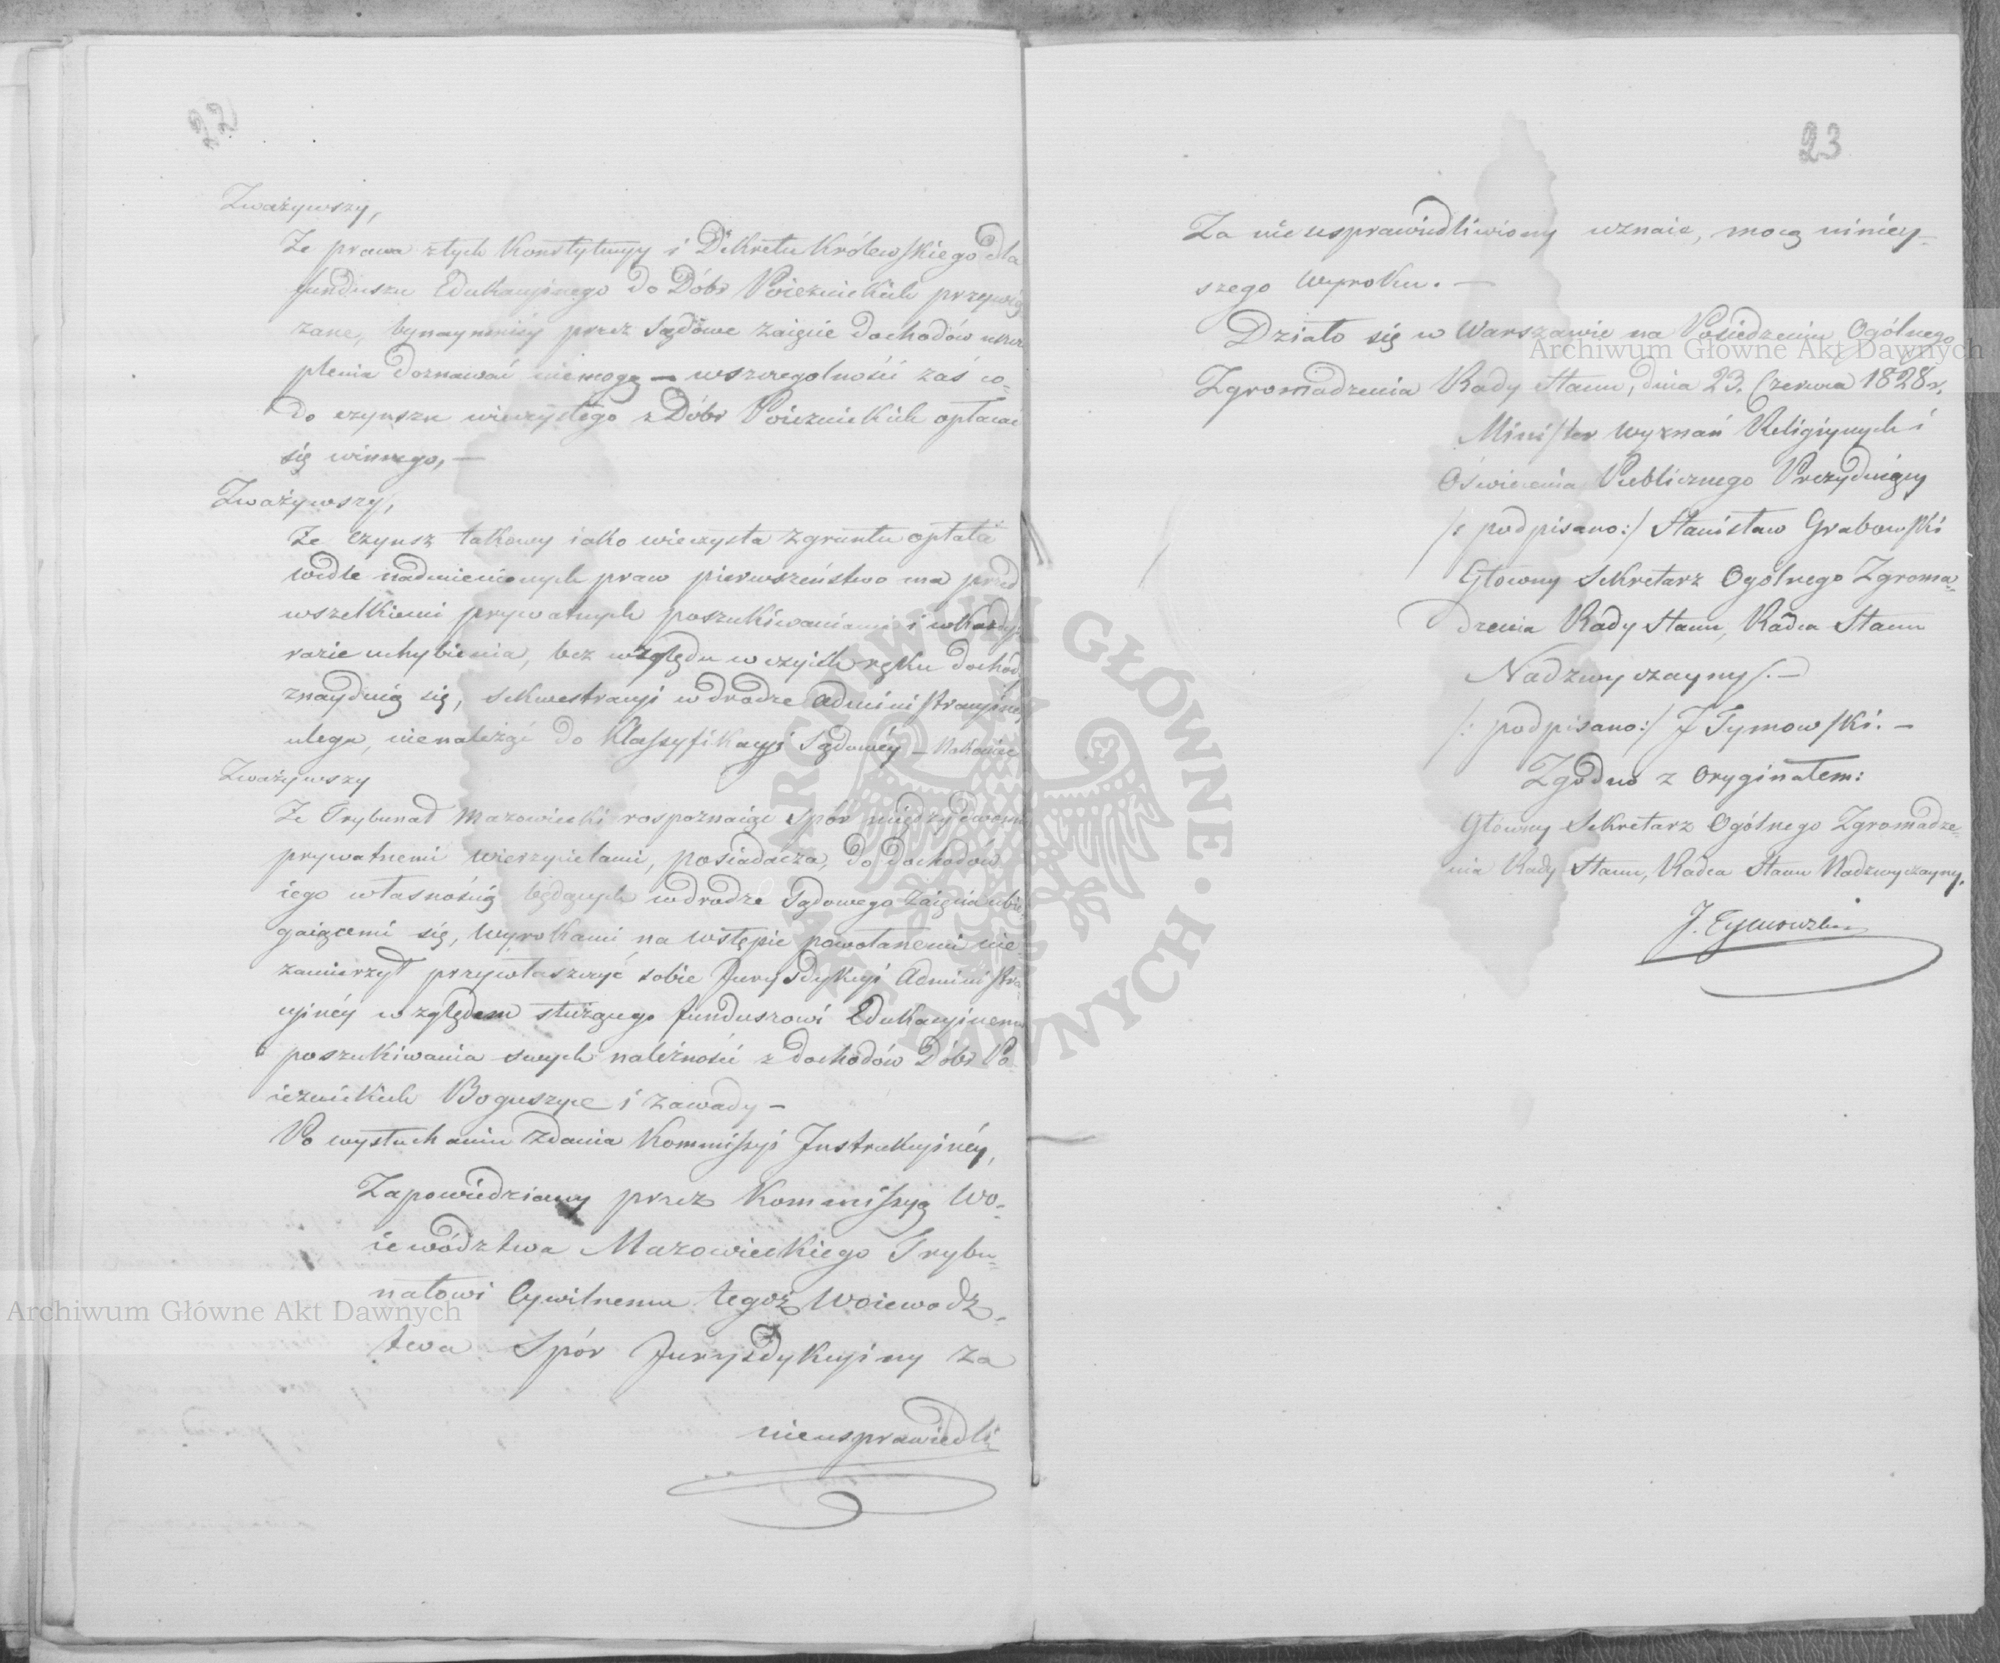 22
Zważywszy,
Że prawa z tych Konstytucyy i Dekretu Królewskiego dla
funduszu Edukacyinego do Dóbr Poiezuickich przywią
zane, bynaymniéy przez Sądowe zaięcie dochodów uszcz
plenia doznawać niemogą – wszczegolności zaś co-
do czynszu wieczystego z Dóbr Poiezuickich opłacać
się winnego, –
Zważywszy,
Że Czynsz takowy iako wieczysta z gruntu opłata
wedle nadmienionych praw pierwszeństwo ma przed
wszelkiemi prywatnych poszukiwaniami i wkażdym
razie uchybienia, bez względu w czyich ręku dochody
znayduią się, sekwestracyi w drodze administracyiney
ulega, nienależąc do Klassyfikacyi Sądowéy – Nakoniec
Zważywszy
Że Trybunał Mazowiecki rozpoznaiąc spór między
prywatnemi Wierzycielami, posiadacza, do dochodów
iego własnością będących w drodze Sądowego Zaięcia ubie
gaiącemi się, Wyrokami na wstępie powołanemi nie
zamierzył przywłaszczyć sobie Juryzdykcyi Administra
cyinéy względem służącego funduszowi Edukacyinemu
poszukiwania swych należności z dochodów Dóbr Po
iezuickich Boguszyce i Zawady –
Po wysłuchaniu Zdania Kommissyi Instrukcyinéy,
Zapowiedziany przez Kommissyą Wo-
iewództwa Mazowieckiego Trybu-
nałowi Cywilnemu tegoż Woiewodz-
twa Spór Juryzdykcyiny za
nieusprawiedli
23
Za nieusprawiedliwiony uznaie, mocą niniey-
szego Wyroku. –
Działo się w Warszawie na Posiedzeniu Ogólnego
Zgromadzenia Rady Stanu, dnia 23. Czerwca 1828 r.
Minister Wyznań Religiynych i
Oświecenia Publicznego Prezyduiący
/: podpisano :/ Stanisław Grabowski
Główny Sekretarz Ogólnego Zgroma-
dzenia Rady Stanu, Radca Stanu
Nadzwyczayny /. –
/: podpisano :/ J Tymowski. –
Zgodno z Oryginałem:
Główny Sekretarz Ogólnego Zgromadze-
nia Rady Stanu, Radca Stanu Nadzwyczayny.
J. Tymowski
Archiwum Główne Akt Dawnych
Archiwum Główne Akt Dawnych
ARCHIWUM GŁÓWNE AKT DAWNYCH W WARSZAWIE